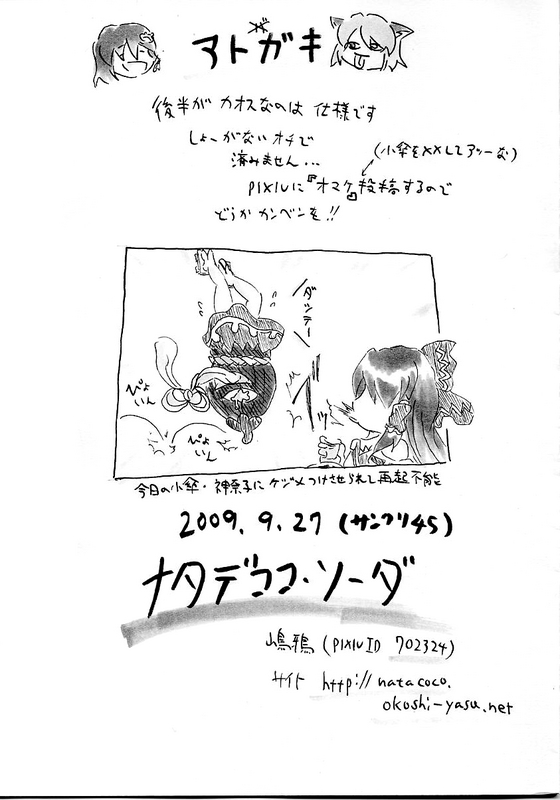 アトガキ
後半が カオスなのは 仕様です
しょーがない オチで
済みません...
(小傘を××してアッーな)
PIXIVに『オマケ』投稿するので
どうか カンベンを!!
ダッテー
ぴょいん
ぴょいん
今日の小傘・神奈子に ケジメつけさせられて 再起不能
2009. 9. 27 (サンクリ45)
ナタデココ・ソーダ
(PIXIV ID 702324)
サイト http://natacoco.
okoshi-yasu.net